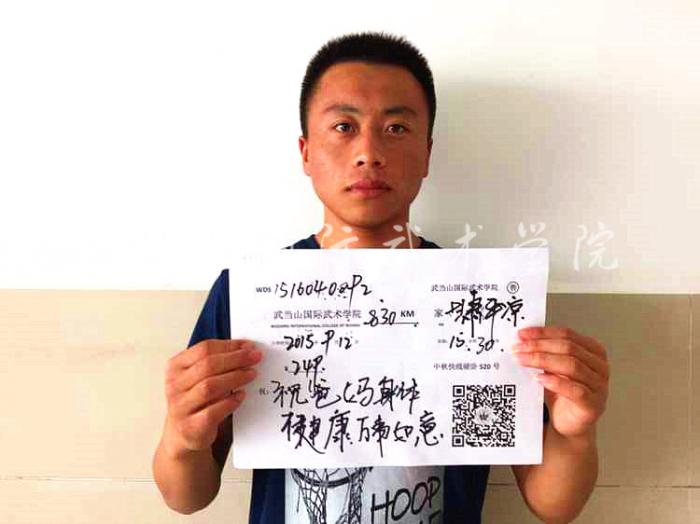 国际武术学院
WDS 1516040
武当山国际武术学院 830 KM 家 甘肃平凉
WUDANG INTERNATIONAL COLLEGE OF WUSHU
2015. 9. 12 15:30
中秋快线硬卧 520 号
祝: 祝爸妈身体
健康 万事如意
HOOP